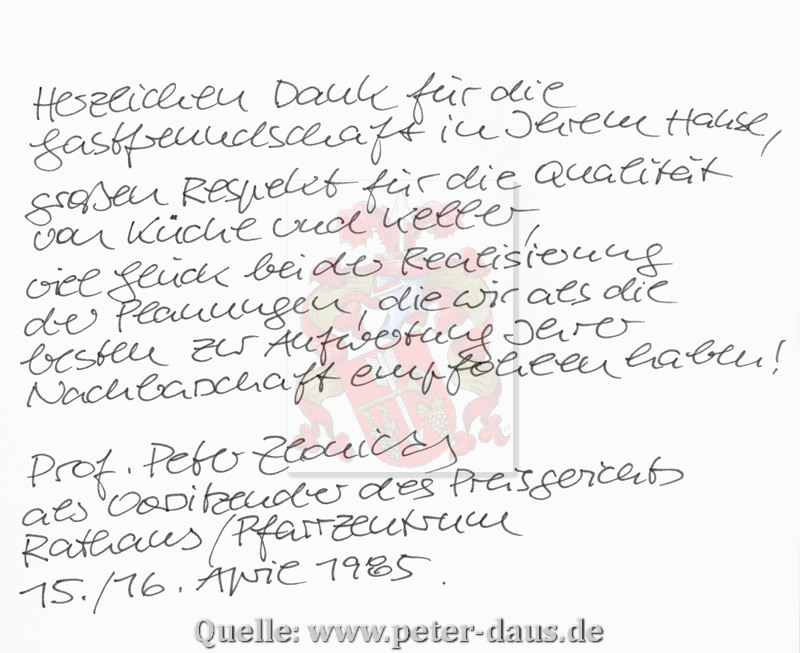 Herzlichen Dank für die
Gastfreundschaft in Ihrem Hause,
großen Respekt für die Qualität
von Küche und Keller,
viel Glück bei der Realisierung
der Planungen, die wir als die
besten zur Aufwertung Ihrer
Nachbarschaft empfohlen haben!
Prof. Peter
als Vorsitzender des Preisgerichts
Rathaus/Pfarrzentrum
15./16. April 1985.
Quelle: www.peter-daus.de